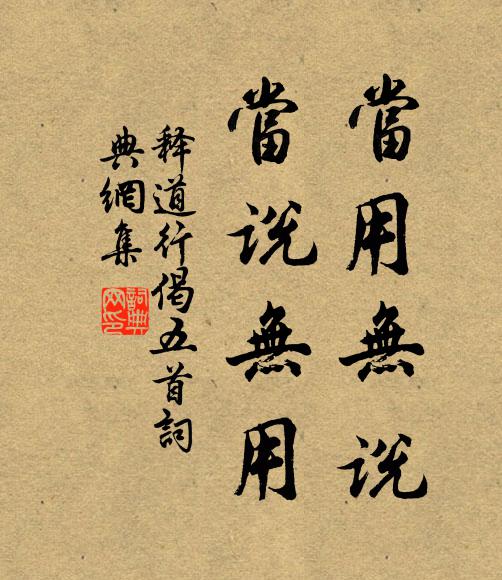 當用無說
當說無用
释道行偈五首詞
典網集
詞典
网印